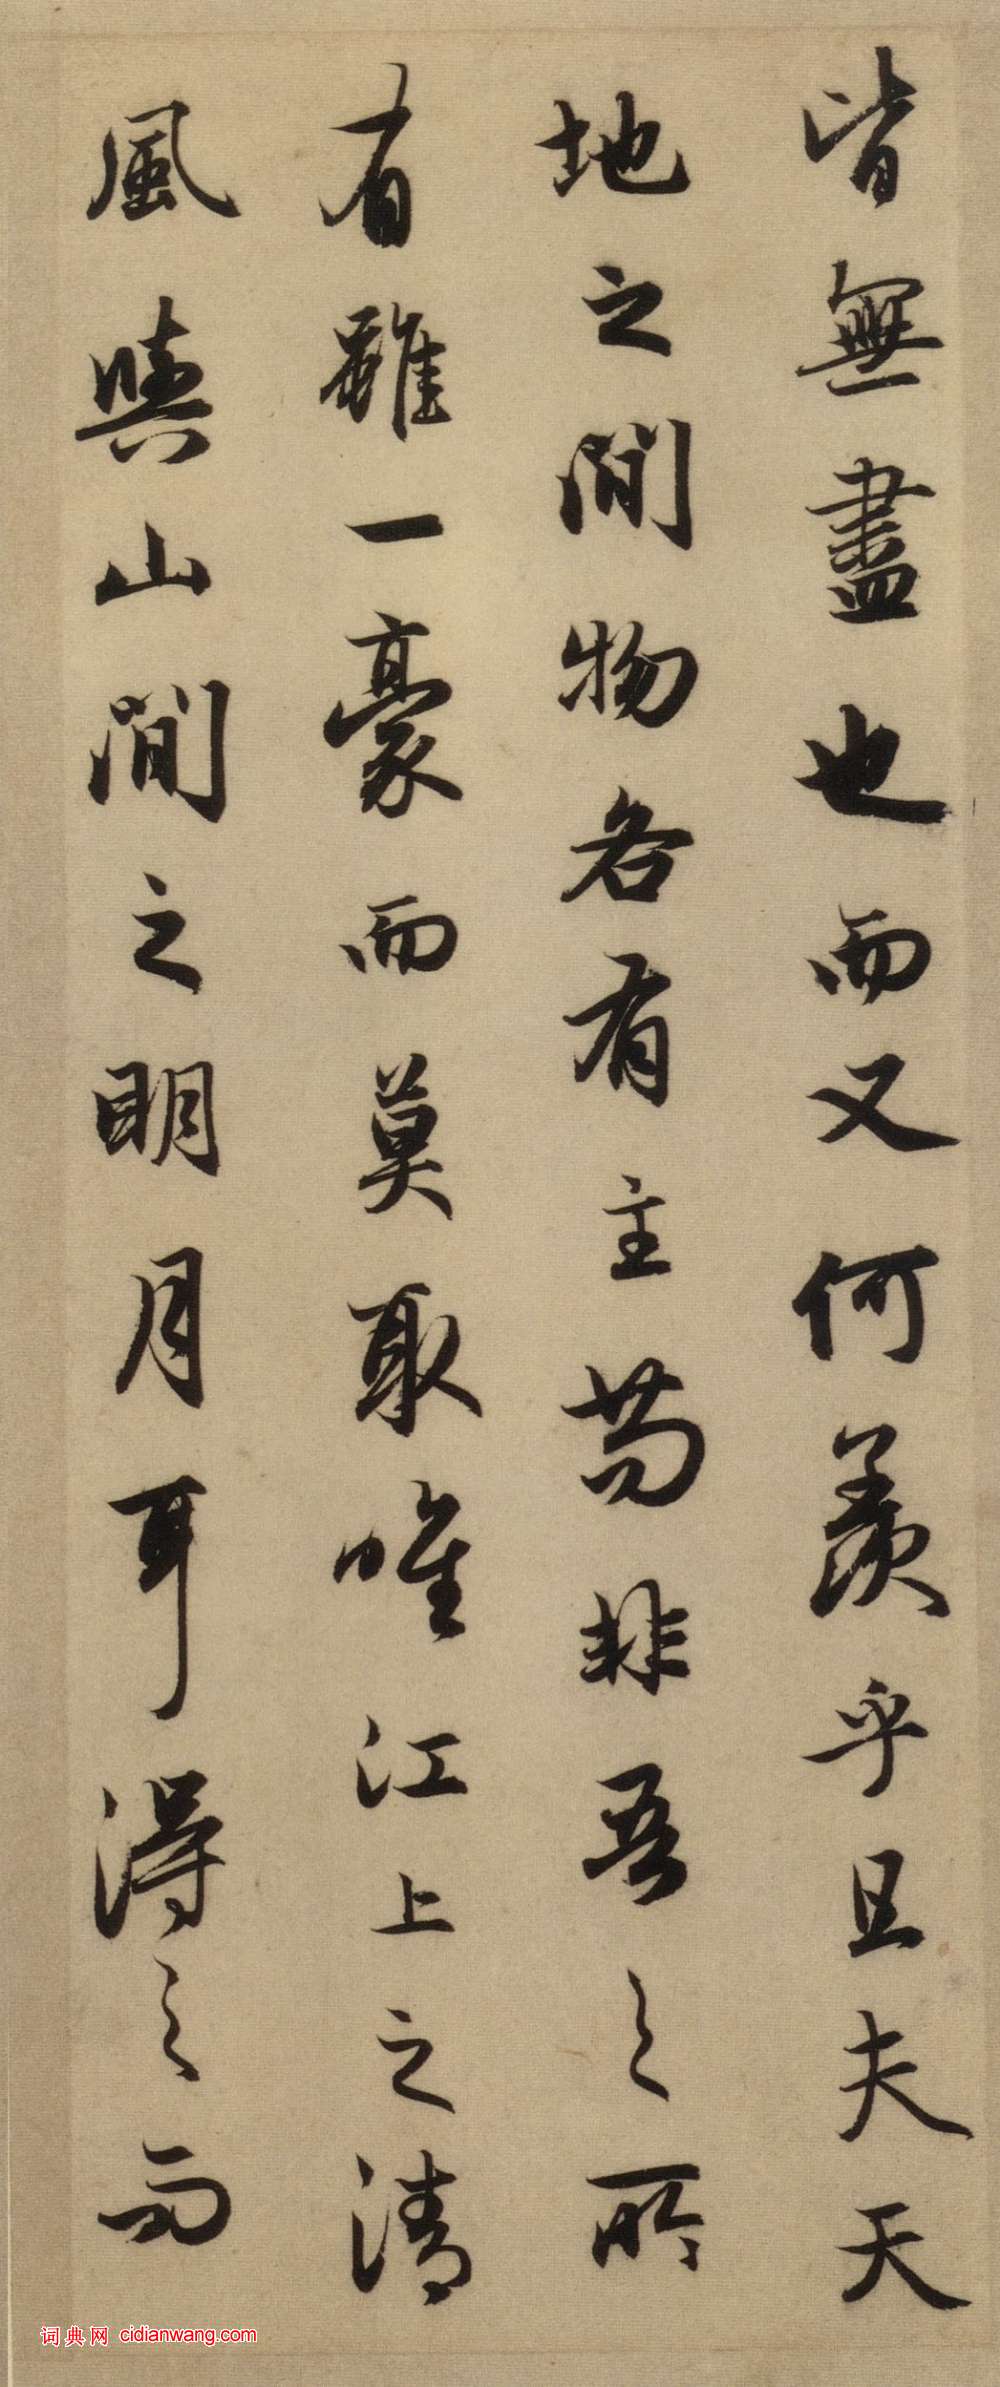 皆無盡也而又何羨乎且夫天
地之間物各有主苟非吾之所
有雖一豪而莫取唯江上之清
風與山間之明月耳得之而
词典网 cidianwang.com